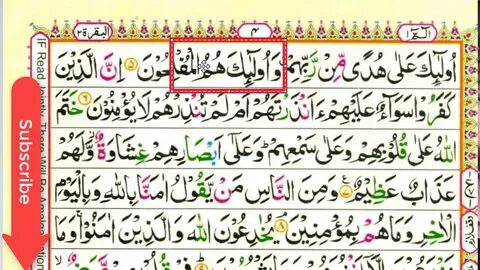 البقرة ٢
٤
الٓمّٓ ١
اُولٰٓئِكَ عَلٰى هُدًى مِّنْ رَّبِّهِمْ وَاُولٰٓئِكَ هُمُ الْمُفْلِحُوْنَ ۝٥ اِنَّ الَّذِيْنَ
كَفَرُوْا سَوَآءٌ عَلَيْهِمْ ءَاَنْذَرْتَهُمْ اَمْ لَمْ تُنْذِرْهُمْ لَا يُؤْمِنُوْنَ ۝٦ خَتَمَ
اللّٰهُ عَلٰى قُلُوْبِهِمْ وَعَلٰى سَمْعِهِمْ وَعَلٰٓى اَبْصَارِهِمْ غِشَاوَةٌ وَّلَهُمْ
عَذَابٌ عَظِيْمٌ ۝٧ وَمِنَ النَّاسِ مَنْ يَّقُوْلُ اٰمَنَّا بِاللّٰهِ وَبِالْيَوْمِ
الْاٰخِرِ وَمَا هُمْ بِمُؤْمِنِيْنَ ۝٨ يُخٰدِعُوْنَ اللّٰهَ وَالَّذِيْنَ اٰمَنُوْا وَمَا
Subscribe
IF Read Jointly, There Will Be